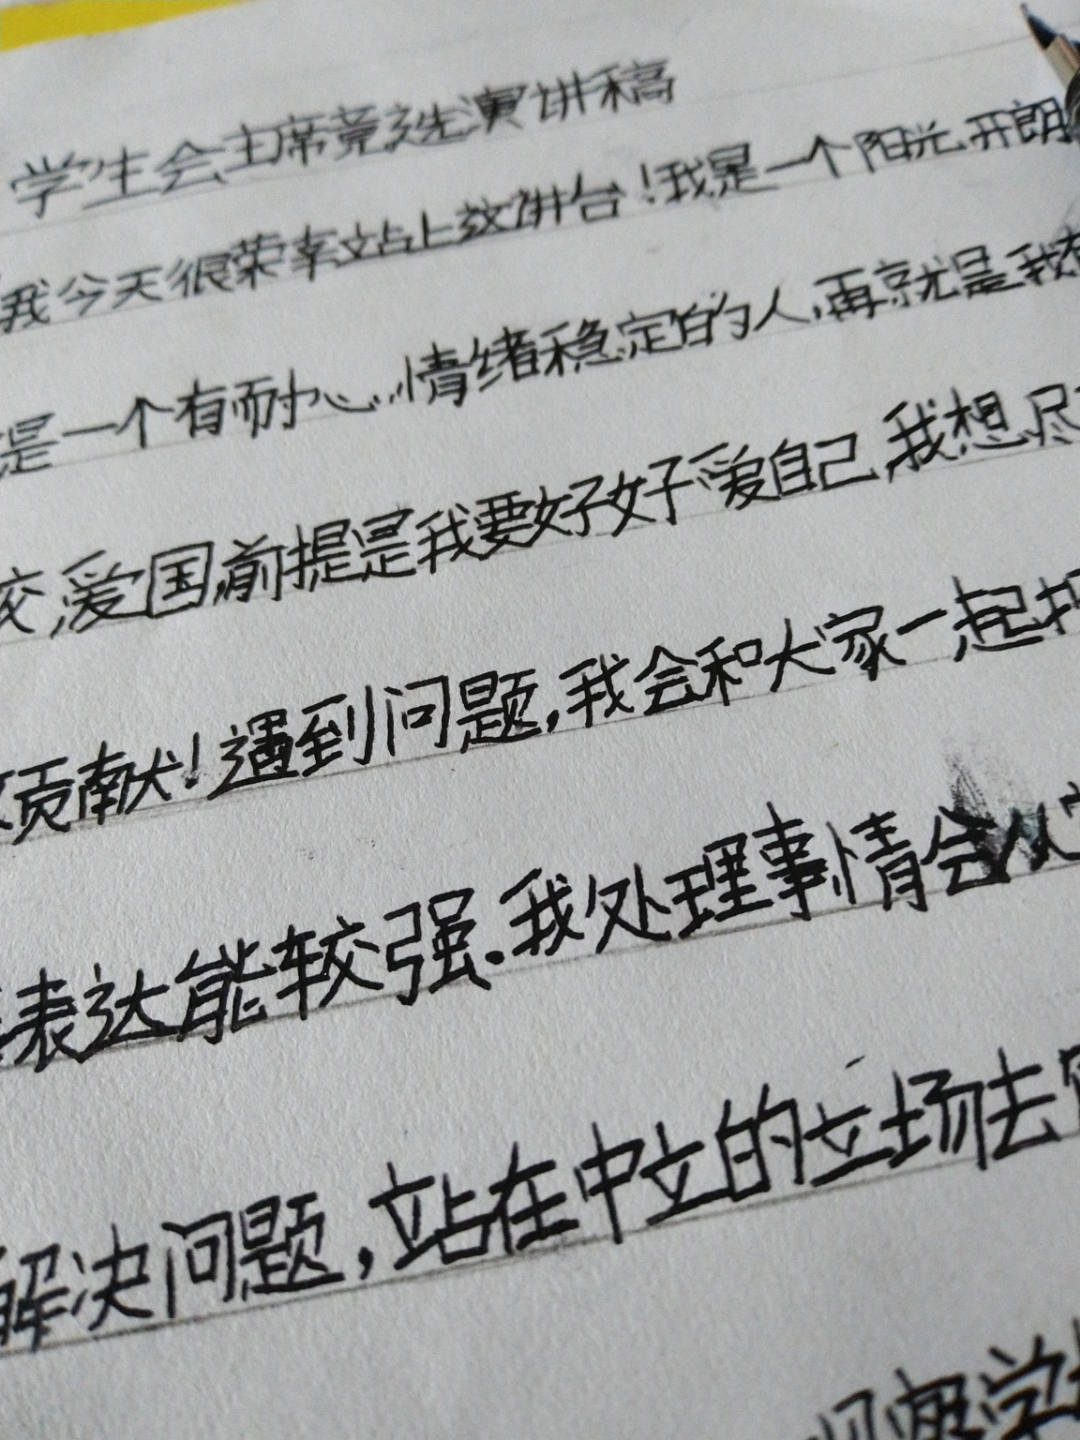 学生会主席竞选演讲稿
我今天很荣幸站上这讲台！我是一个阳光,开朗
是一个有耐心,情绪稳定的人,再就是我有
校,爱国,前提是我要好好爱自己,我想,尽
贡献！遇到问题,我会和大家一起
表达能较强.我处理事情会从
解决问题,站在中立的立场去
学